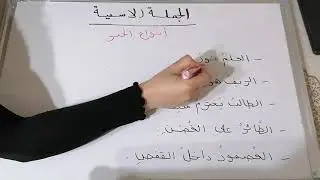 الجملة الاسمية
أنواع الخبر
- العلم نور
- الريف
- الطالب يحترم
- الطائر على الغصن .
- العصفور داخل القفص .